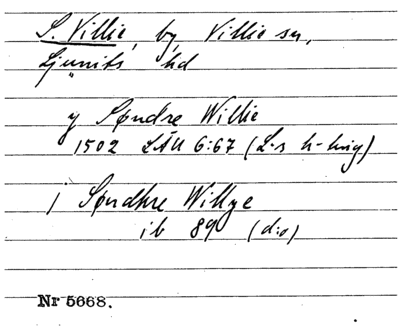 S. Villie, by, Villie sn,
Ljunits hd
y Søndre Willie
1502 LÄU 6:67 (L-s h-ting)
j Søndhre Willye
ib 89 (d:o)
Nr 5668.